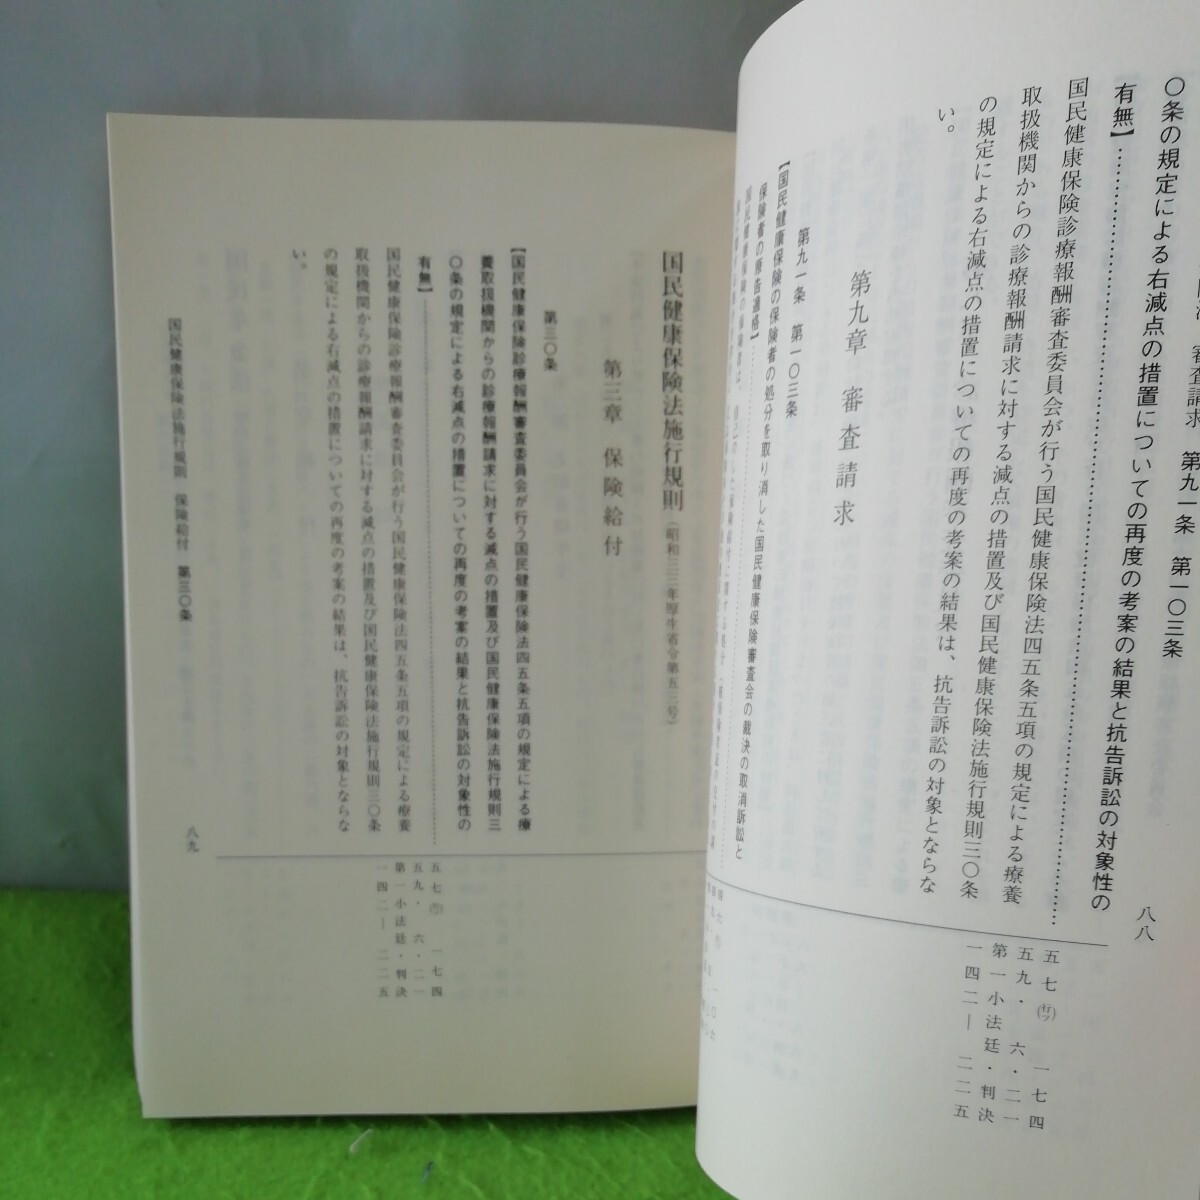 審査請求 第九一条 第一〇三条
〇条の規定による右減点の措置についての再度の考案の結果と抗告訴訟の対象性の
有無】
国民健康保険診療報酬審査委員会が行う国民健康保険法四五条五項の規定による療養
取扱機関からの診療報酬請求に対する減点の措置及び国民健康保険法施行規則三〇条
の規定による右減点の措置についての再度の考案の結果は、抗告訴訟の対象とならな
い。
五七(行ツ)一七四
五九・六・二一
第一小法廷・判決
一四二―二二五
八八
第九章 審査請求
第九一条 第一〇三条
【国民健康保険の保険者の処分を取り消した国民健康保険審査会の裁決の取消訴訟と
保険者の原告適格】
国民健康保険の保険者は、
国民健康保険法施行規則(昭和三三年厚生省令第五三号)
第三章 保険給付
第三〇条
【国民健康保険診療報酬審査委員会が行う国民健康保険法四五条五項の規定による療
養取扱機関からの診療報酬請求に対する減点の措置及び国民健康保険法施行規則三
〇条の規定による右減点の措置についての再度の考案の結果と抗告訴訟の対象性の
有無】
国民健康保険診療報酬審査委員会が行う国民健康保険法四五条五項の規定による療養
取扱機関からの診療報酬請求に対する減点の措置及び国民健康保険法施行規則三〇条
の規定による右減点の措置についての再度の考案の結果は、抗告訴訟の対象とならな
い。
五七(行ツ)一七四
五九・六・二一
第一小法廷・判決
一四二―二二五
国民健康保険法施行規則 保険給付 第三〇条
八九